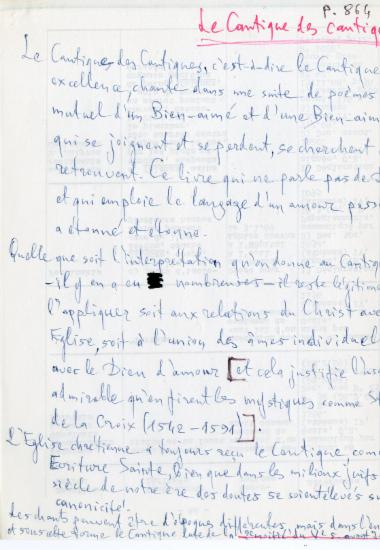 P. 864
Le Cantique des cantiq
Le Cantique des Cantiques, c'est-à-dire le Cantique
excellence, chante dans une suite de poèmes
mutuel d'un Bien-aimé et d'une Bien-aim
qui se joignent et se perdent, se cherchent
retrouvent. Ce livre qui ne parle pas de
et qui emploie le langage d'un amour pass
a étonné et étonne.
Quelle que soit l'interprétation qu'on donne au Cantiq
- il y en a eu nombreuses - il reste légitim
l'appliquer soit aux relations du Christ ave
Eglise, soit à l'union des âmes individuel
avec le Dieu d'amour [et cela justifie l'usa
admirable qu'en firent les mystiques comme St
de la Croix (1542-1591)].
L'Eglise chrétienne a toujours reçu le Cantique com
Ecriture Sainte, bien que dans les milieux juifs
siècle de notre ère des doutes se soient élevés su
canonicité.
Les chants peuvent être d'époques différentes, mais dans l'en
et sous cette forme le Cantique date de la du Ve s. avant